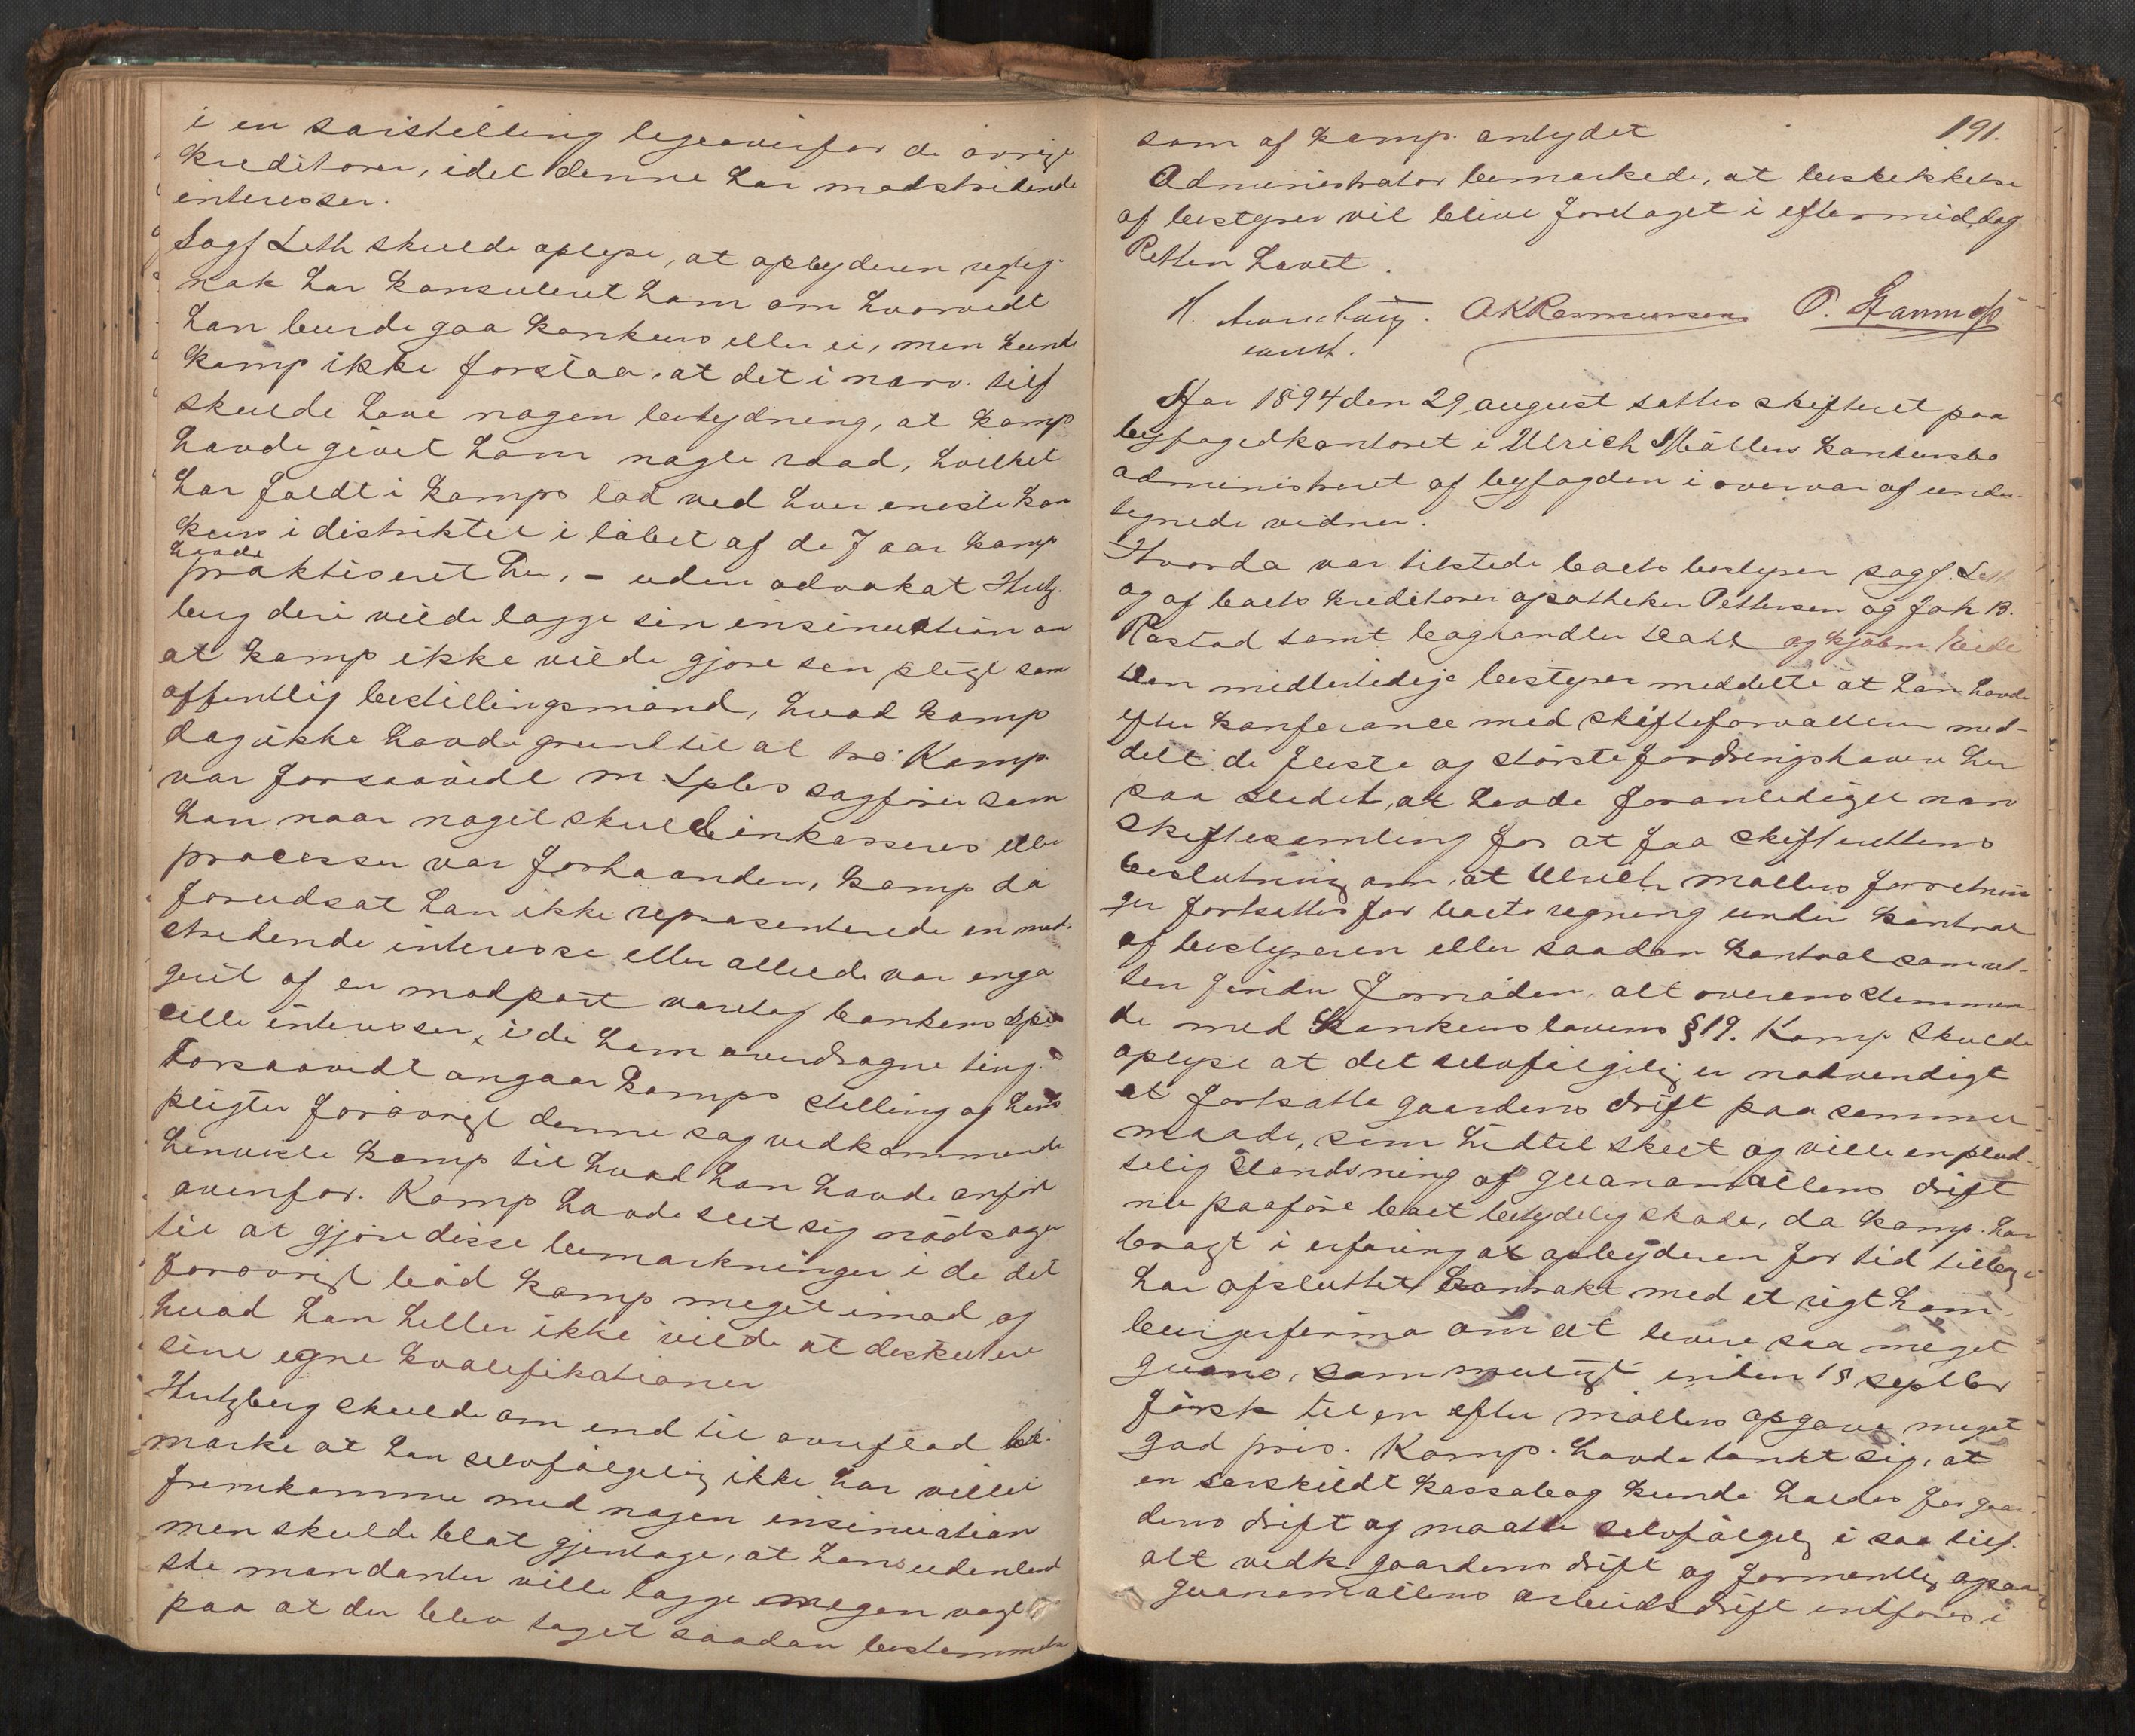 i en særstilling ligeoverfor de øvrige
kreditorer, idet denne har modstridende
interesser.
Sagf Leth skulde oplyse, at opbyderen rigtig-
nok har konsuleret ham om hvorvidt
han burde gaa konkurs eller ei, men kunde
komp ikke forstaa, at det i nærv. tilf
skulde have nogen betydning, at komp
havde givet ham nogle raad, hvilket
har faldt i komps lod ved hver eneste kon
kurs i distriktet i løbet af de 7 aar komp
havde
praktiseret her, - uden advokat Hutz-
berg deri vilde lægge sin insinuation om
at komp ikke vilde gjøre sin pligt som
offentlig bestillingsmand, hvad komp
dog ikke havde grund til at tro. Komp
var forsaavidt m. Spbs sagfører som
han naar noget skulde inkasseres eller
processer var forhaanden, komp da
forudsat han ikke repræsenterede en mod-
stridende interesse eller allerede var enga
geret af en modpart varetog bankens spe
cielle interesser, i de ham overdragne ting.
Forsaavidt angaar komps stilling og hans
pligter forøvrigt denne sag vedkommende
henviste komp til hvad han havde anført
ovenfor. Komp havde seet sig nødsaget
til at gjøre disse bemærkninger i de det
forøvrigt bød komp meget imod og
hvad han heller ikke vilde at diskutere
sine egne kvalifikationer
Hutzberg skulde om end til overflød be-
mærke at han selvfølgelig ikke har villet
fremkomme med nogen insinuation
men skulde blot gjentage, at hans udenland
ske mandanter ville lægge megen vægt
paa at der blev taget saadan bestemmelse
191.
som af komp. antydet
Administrator bemærkede, at beskikkelse
af bestyrer vil blive foretaget i eftermiddag
Retten hævet.
A K Rasmussen O.
const.
Aar 1894 den 29 august sattes skifteret paa
byfogedkontoret i Ulrich Møllers konkursbo
administreret af byfogden i overvær af under-
tegnede vidner.
Hvorda var tilstede boets bestyrer sagf. Leth
og af boets kreditorer apotheker Pettersen og Joh B.
Rostad samt boghandler Dahl og kjøbm Eide
Den midlertidige bestyrer meddelte at han havde
efter konferance med skifteforvalteren med-
delt de fleste og største fordringshavere her
paa stedet, at havde foranlediget nærv
skiftesamling for at faa skifterettens
beslutning om, at Ulrich Møllers forretnin
ger fortsattes for boets regning under kontrol
af bestyreren eller saadan kontrol som ret-
ten finder fornøden, alt overensstemmen-
de med konkurslovens §19. Komp skulde
oplyse at det selvfølgelig er nødvendigt
at fortsætte gaardens drift paa samme
maade, som hidtil skeet og ville en plud-
selig standsning af guanomøllens drift
nu paaføre boet betydelig skade, da komp. har
bragt i erfaring at opbyderen for tid tilbage
har afsluttet kontrakt med et rigt ham-
burgerfirma om at levere saa meget
guano, som muligt inden 15 septbr
først til en efter Møllers opgave meget
god pris. Komp. havde tænkt sig, at
en særskildt kassabog kunde holdes for gaar-
dens drift og maatte selvfølgelig i saa tilf.
alt vedk. gaardens drift og formentlig ogsaa
guanomøllens arbeidsdrift indføres i